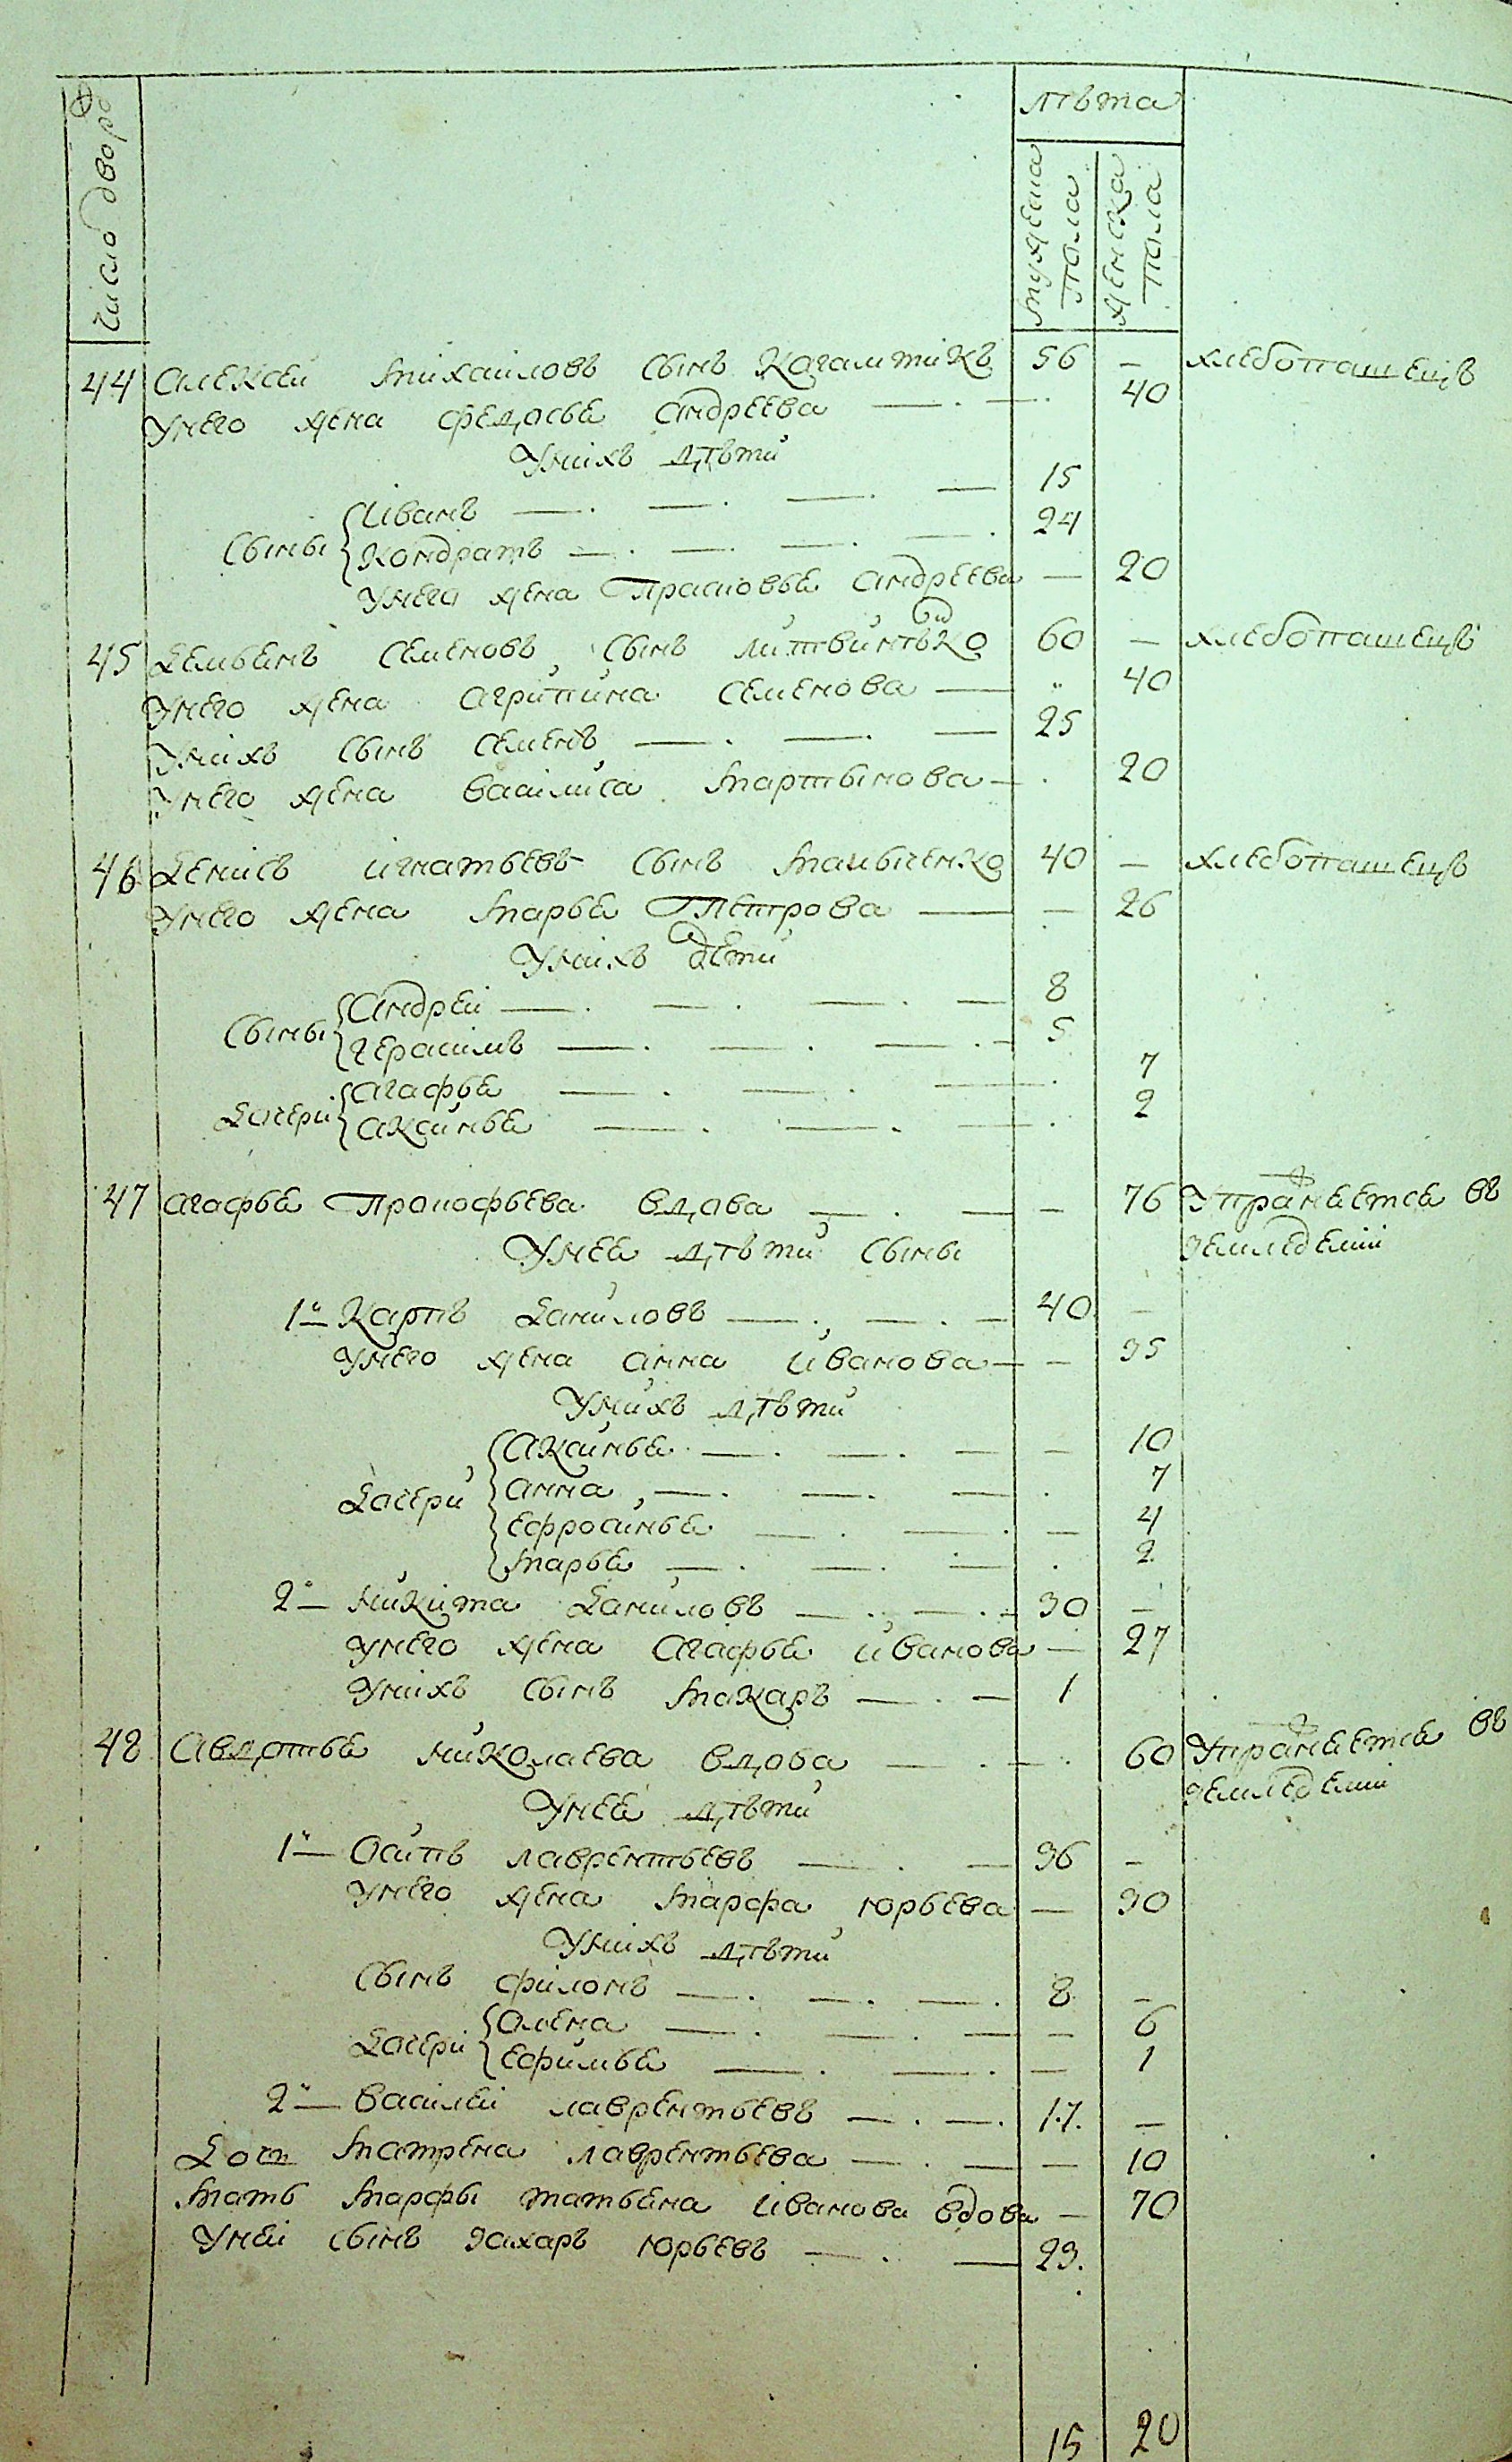 Число дворо
лѣта
мужеска пола
женска пола
44 Алексеи михаиловъ сынъ Кагамликъ 56 — хлебопашецъ
Унего жена федосья андреева — . — . 40
Унихъ дѣти
Сыны
Иванъ — . — . — . — 15
Кондратъ — . — . — . — . 24
Унего жена Прасковья андреева — 20
45 Демьянъ семеновъ сынъ 60 — хлебопашецъ
Унего жена агрипина семенова — „ 40
Унихъ сынъ семенъ — . — . — 25
Унего жена василиса мартынова — . 20
46 Денисъ игнатьевъ сынъ 40 — хлебопашецъ
Унего жена марья Петрова — — 26
Унихъ дети
Сыны
Андреи — . — . — . — 8
герасимъ — . — . — . — 5
Дочери
агафья — . — . — . 7
аксинья — . — . — . 2
47 агафья Прокофьева вдова — . — — 76 Упражняется въ
земледелии
Унея дѣти сыны
1й Карпъ Даниловъ — . — . — 40 —
Унего жена анна иванова — — 35
Унихъ дѣти
Дочери
Аксинья — . — . — — 10
анна — . — . — . 7
ефросинья — . — . — 4
марья — . — . — . 2
2й никита Даниловъ — . — . — 30 —
Унего жена агафья иванова — 27
Унихъ сынъ макаръ — . — 1
48 Авдотья николаева вдова — . — . 60 Упражняется въ
земледелии
Унея дѣти
1й Осипъ лаврентьевъ — . — 36 —
Унего жена марфа юрьева — 30
Унихъ дѣти
Сынъ филонъ — . — . — . 8 —
Дочери
Олена — . — . — — 6
ефимья — . — . — 1
2й василеи лаврентьевъ — . — . 17. —
Доч матрена лаврентьева — . — — 10
Мать марфы татьяна иванова вдова — 70
Унеи сынъ захаръ юрьевъ — . — 23.
15 20